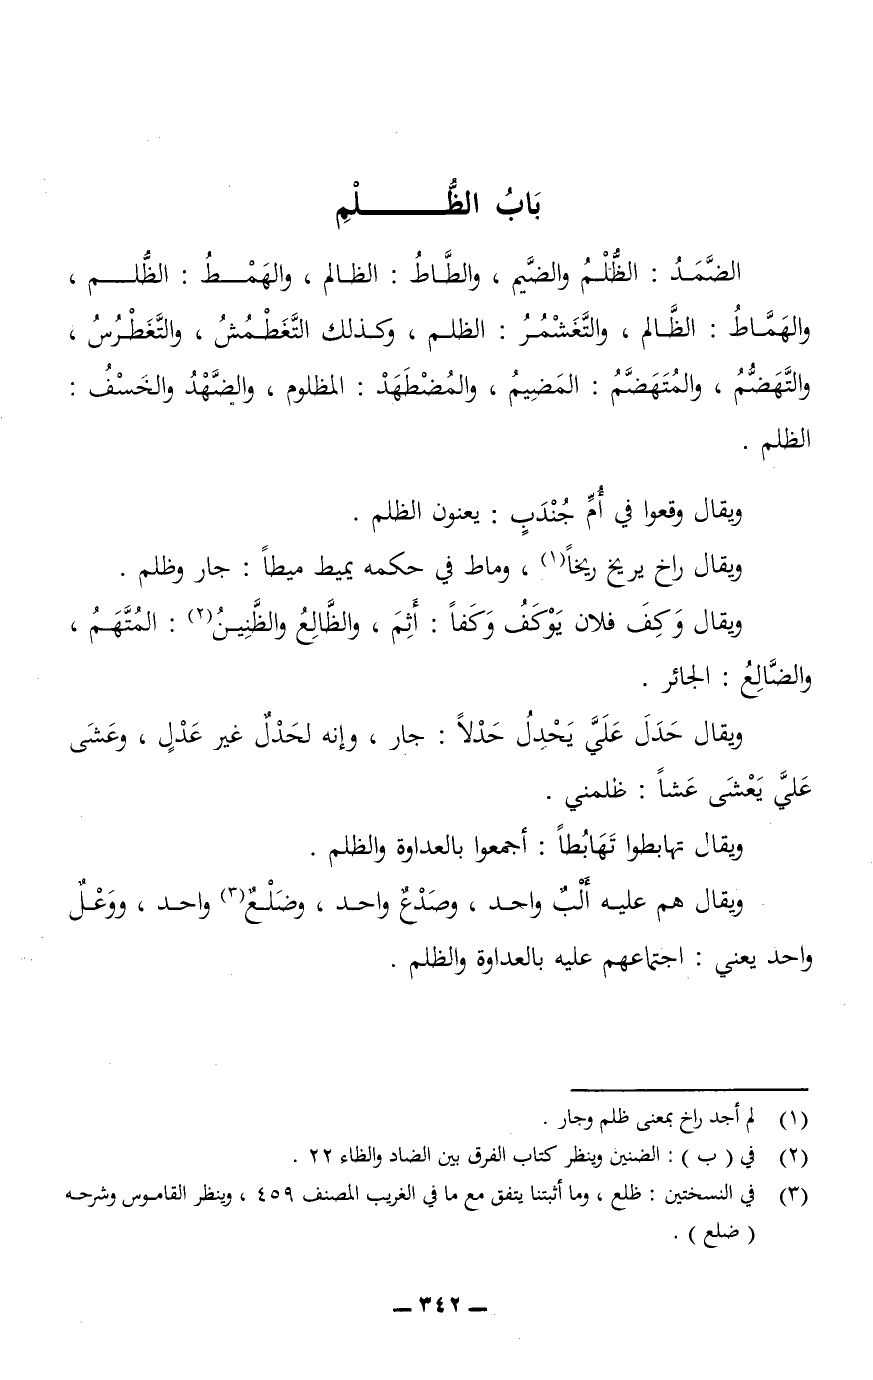 بَابُ الظُّلْمِ
الضَّمَدُ : الظُّلْمُ والضَّيم ، والطَّاطُ : الظالم ، والهَمْطُ : الظُّلم ،
والهَمَّاطُ : الظَّالم ، والتَّغَشْمُرُ : الظلم ، وكذلك التَّغَطْمُشُ ، والتَّغَطْرُسُ ،
والتَّهَضُّمُ ، والمُتَهَضَّمُ : المَضِيمُ ، والمُضْطَهَدْ : المظلوم ، والضَّهْدُ والخَسْفُ :
الظلم .
ويقال وقعوا في أُمِّ جُنْدَبٍ : يعنون الظلم .
ويقال راخ يريخ ريخاً(١) ، وماط في حكمه يميط ميطاً : جار وظلم .
ويقال وَكِفَ فلان يَوْكَفُ وَكَفاً : أَثِمَ ، والظَّالِعُ والظَّنِينُ(٢) : المُتَّهَمُ ،
والضَّالِعُ : الجائر .
ويقال حَدَلَ عَلَيَّ يَحْدِلُ حَدْلاً : جار ، وإنه لحَدْلٌ غير عَدْلٍ ، وعَشَى
عَليَّ يَعْشَى عَشاً : ظلمني .
ويقال تهابطوا تَهَابُطاً : أجمعوا بالعداوة والظلم .
ويقال هم عليه أَلْبٌ واحد ، وصَدْعٌ واحد ، وضَلْعٌ(٣) واحد ، ووَعْلٌ
واحد يعني : اجتماعهم عليه بالعداوة والظلم .
(١) لم أجد راخ بمعنى ظلم وجار .
(٢) في ( ب ) : الضنين وينظر كتاب الفرق بين الضاد والظاء ٢٢ .
(٣) في النسختين : ظلع ، وما أثبتنا يتفق مع ما في الغريب المصنف ٤٥٩ ، وينظر القاموس وشرحه
( ضلع ) .
ــ ٣٤٢ ــ